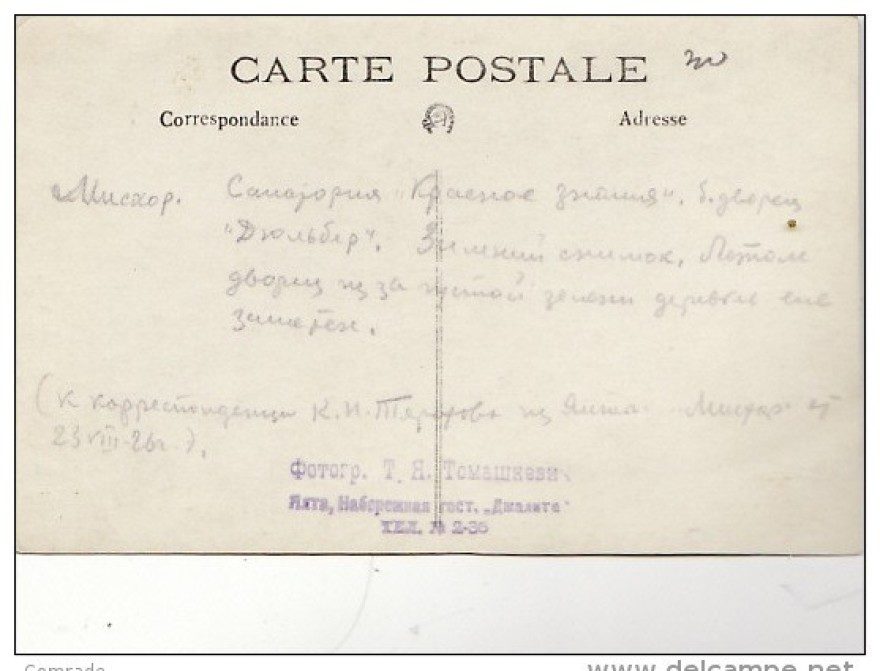 CARTE POSTALE
Correspondance Adresse
Мисхор. Санатория "Красное знамя". б. дворец
"Дюльбер". Зимний снимок. Летом
дворец из за густой зелени деревьев еле
заметен.
(К корреспонденции К. Н. из Ялты - Мисхор от
23 VIII 26 г.).
Фотогр. Т. Я. Томашкевич
Ялта, Набережная гост. „Джалита"
ТЕЛ. № 2-36
Comrade
www.delcampe.net